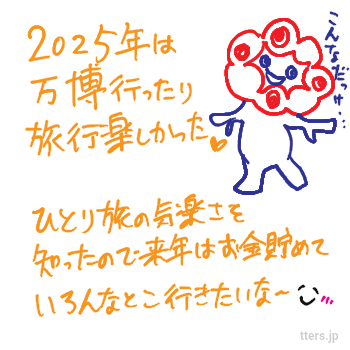 2025年は
万博行ったり
旅行楽しかった
こんなだっけ...
ひとり旅の気楽さを
知ったので来年はお金貯めて
いろんなとこ行きたいな～
tters.jp